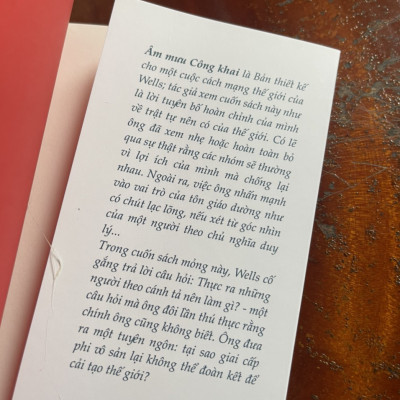 Âm mưu Công khai là Bản thiết kế
cho một cuộc cách mạng thế giới của
Wells; tác giả xem cuốn sách này như
là lời tuyên bố hoàn chỉnh của mình
về trật tự nên có của thế giới. Có lẽ
ông đã xem nhẹ hoặc hoàn toàn bỏ
qua sự thật rằng các nhóm sẽ thường
vì lợi ích của mình mà chống lại
nhau. Ngoài ra, việc ông nhấn mạnh
vào vai trò của tôn giáo dường như
có chút lạc lõng, nếu xét từ góc nhìn
của một người theo chủ nghĩa duy
lý...
Trong cuốn sách mỏng này, Wells cố
gắng trả lời câu hỏi: Thực ra những
người theo cánh tả nên làm gì? - một
câu hỏi mà ông đôi lần thú thực rằng
chính ông cũng không biết. Ông đưa
ra một tuyên ngôn: tại sao giai cấp
phi vô sản lại không thể đoàn kết để
cải tạo thế giới?